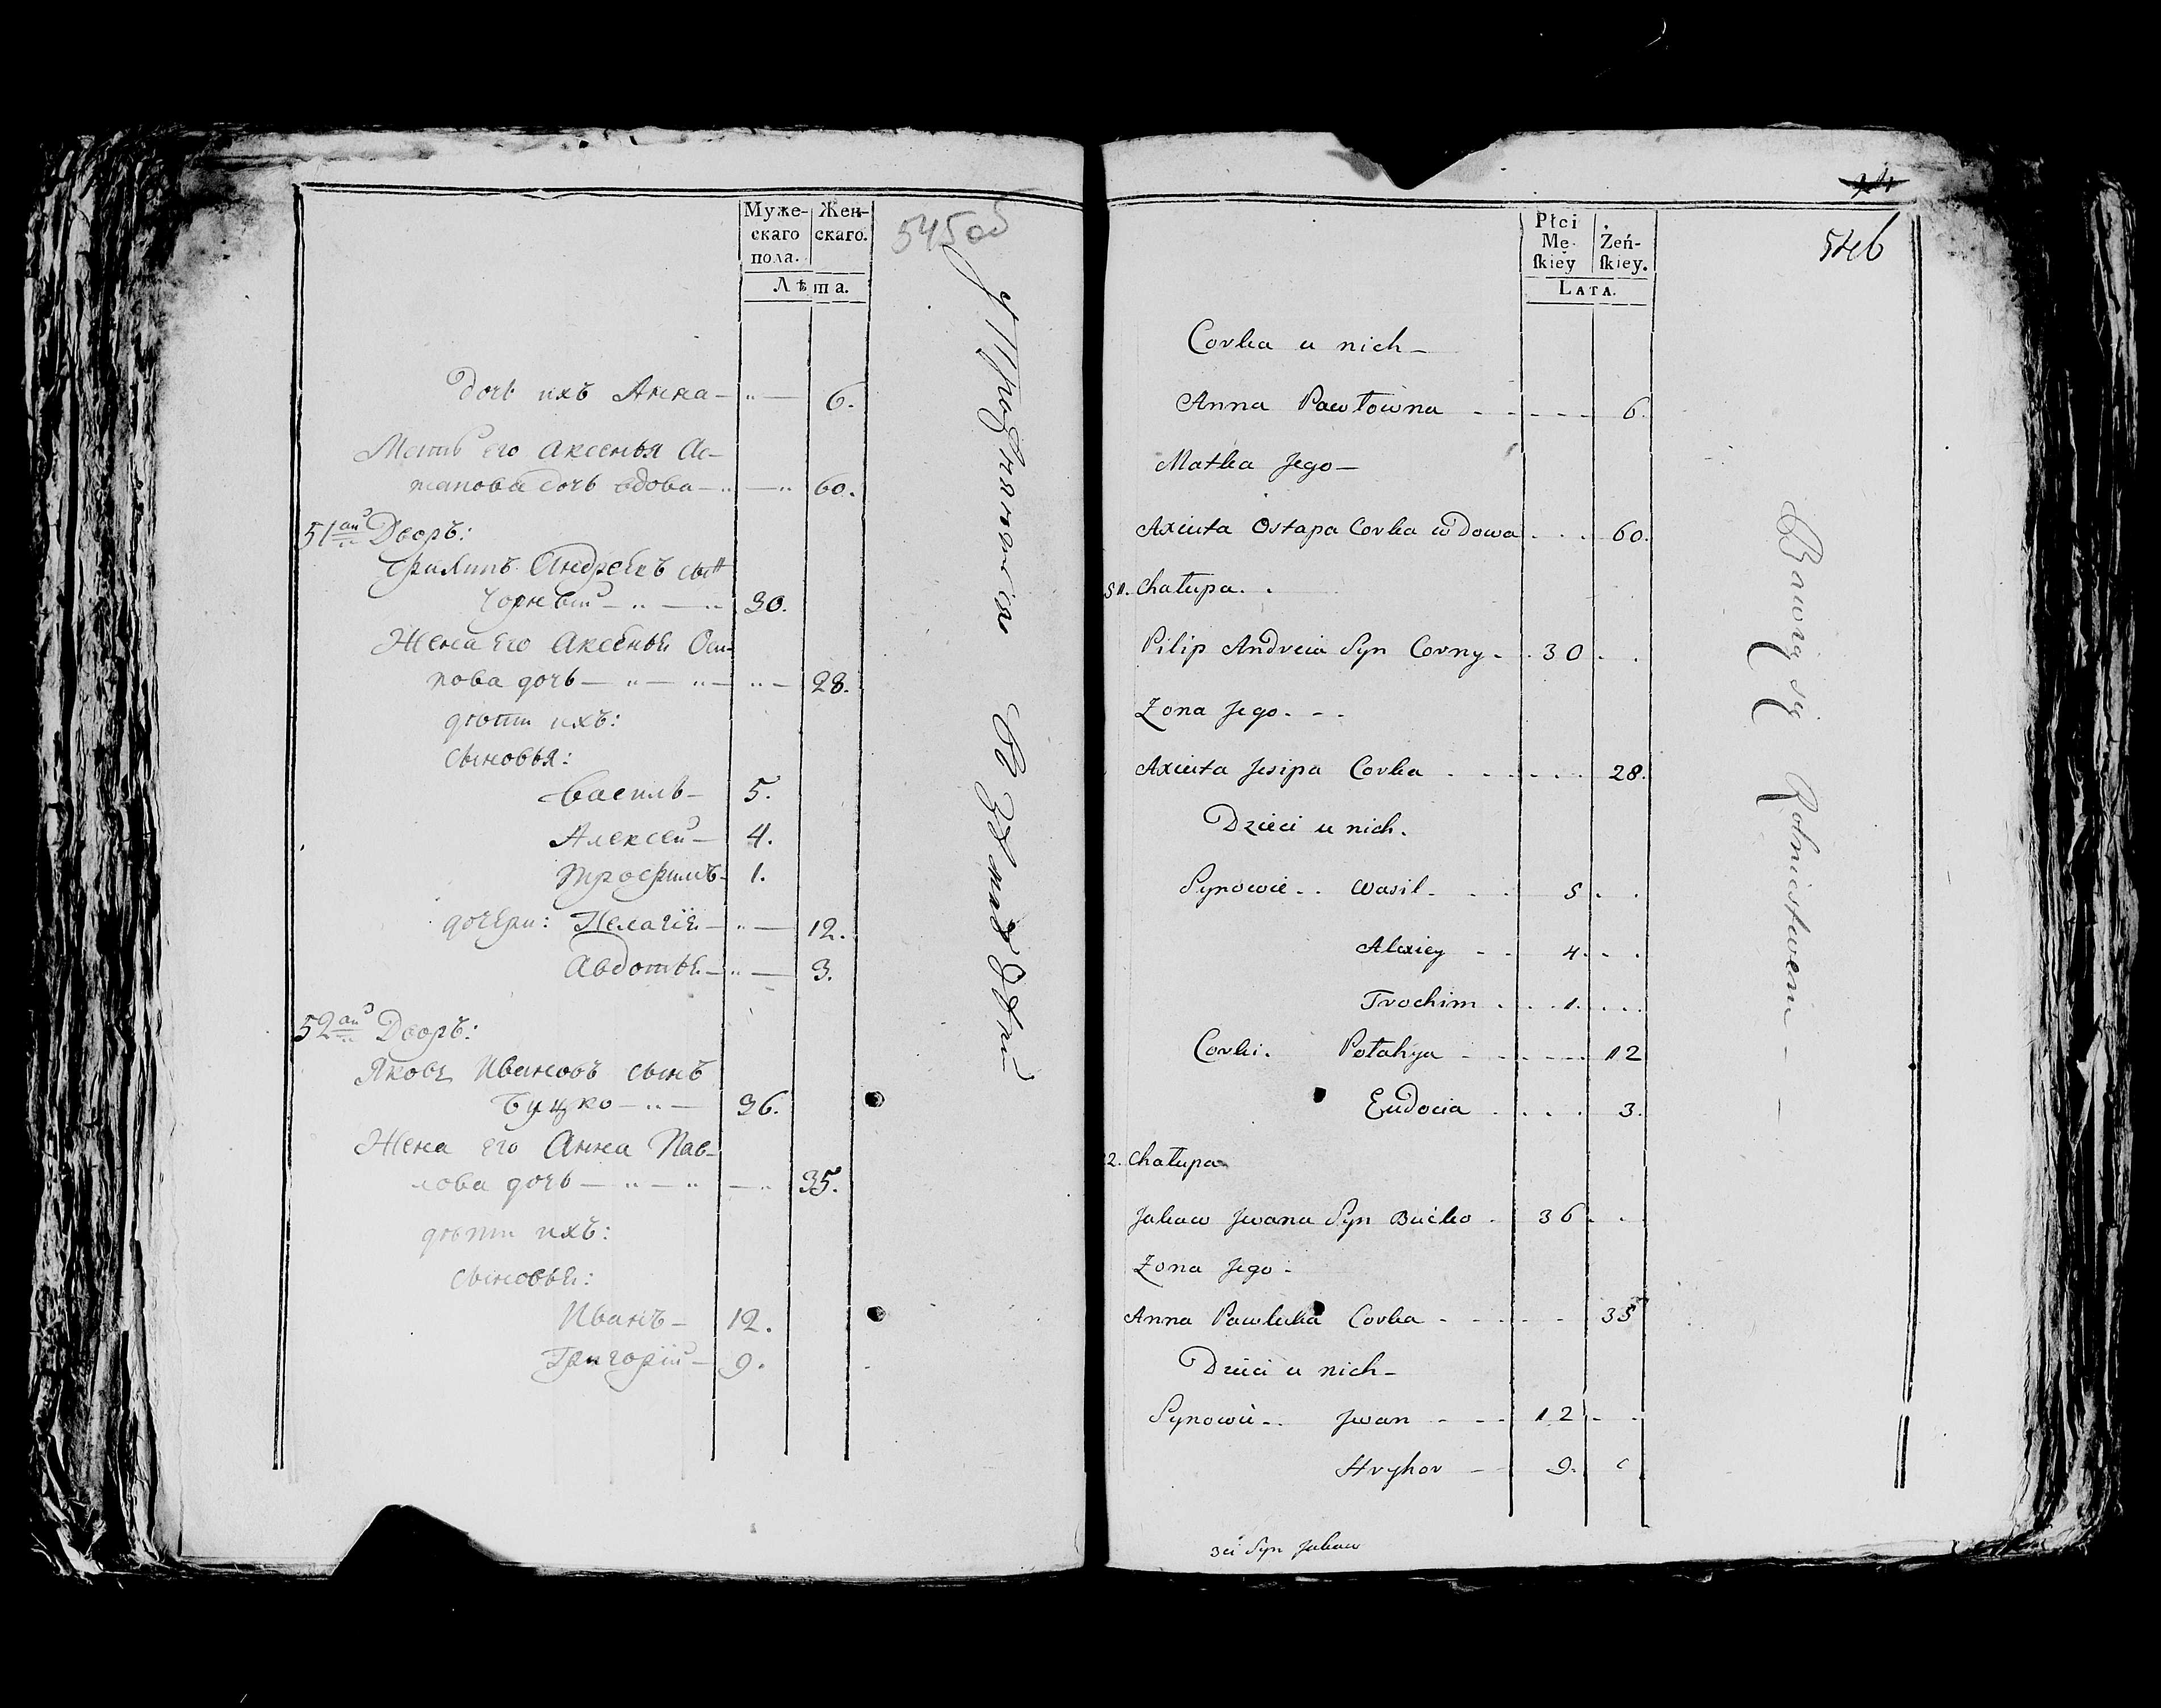 Муже-
скаго
пола.
Жен-
скаго.
Лѣта.
545 об
дочь ихъ Анна — 6.
Мать его Аксенья Ас-
тапова дочь вдова — 60.
51й Дворъ:
Филипъ Андреевъ сынъ
Чорный — 30.
Жена его Аксенья Оси-
пова дочь — 28.
дѣти ихъ:
сыновья:
Василь — 5.
Алексей — 4.
Трофимъ — 1.
дочери: Пелагiя — 12.
Авдотья — 3.
52й Дворъ:
Яковъ Ивановъ сынъ
Буцко — 36.
Жена его Анна Пав-
лова дочь — 35.
дѣти ихъ:
сыновья:
Иванъ — 12.
Григорiй — 9.
Упражняются В Землѣделiи
Płci
Mę-
ſkiey
Żeń-
ſkiey.
LATA.
546
Corka u nich —
Anna Pawłowna 6.
Matka Jego —
Axiuta Ostapa Corka wdowa 60.
51. Chałupa.
Pilip Andreia Syn Corny 30
Zona Jego
Axiuta Jesipa Corka 28.
Dzieci u nich.
Synowie Wasil 5
Alexiey 4.
Trochim 1.
Corki. Połahya 12
Eudocia 3.
2. Chałupa
Jakow Jwana Syn Bucko 36
Zona Jego
Anna Pawluka Corka 35
Dzieci u nich —
Synowie Jwan 12
Hryhor 9.
3ci Syn Jakow
Bawią się Rolnictwem —